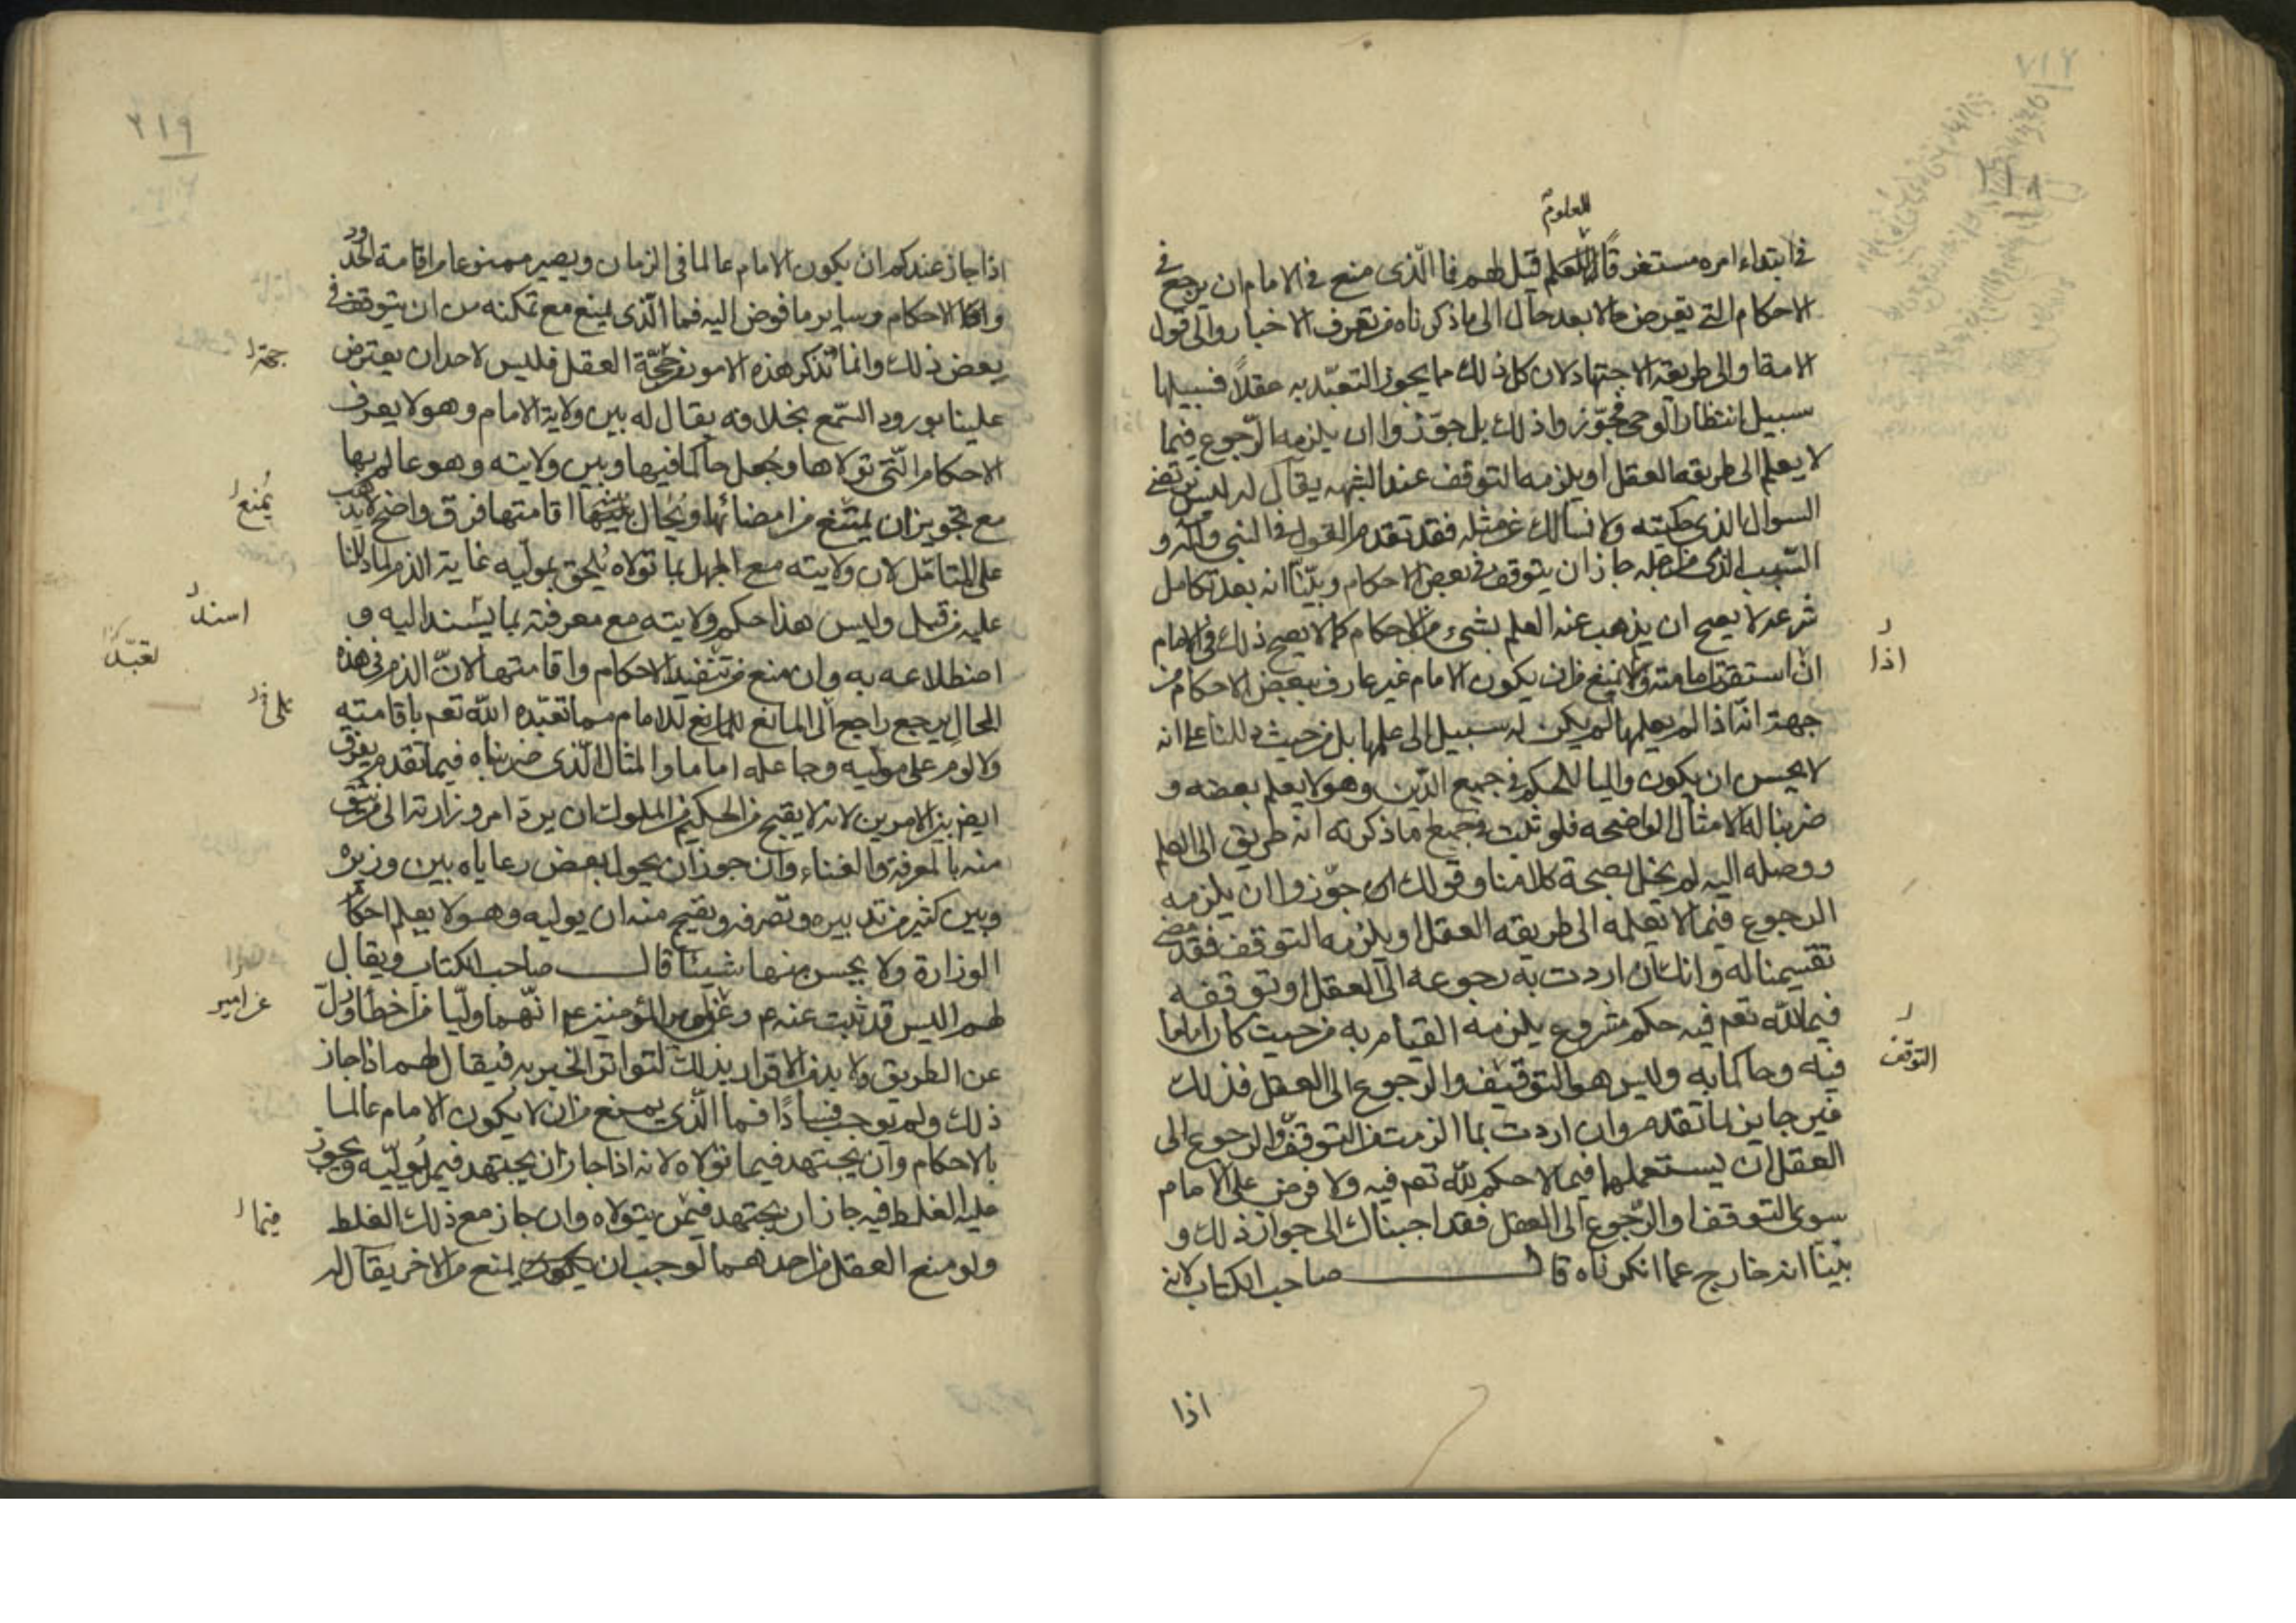 للعلوم
في ابتداء امره مستغرقًا للعلم قيل لهم فما الّذى منع فى الامام ان يرجع في
الاحكام التى تعرض حالا بعد حال الى ما ذكرناه من تعرف الاخبار والى قول
الامة او الى طريقة الاجتهاد لان كل ذلك مما يجوز التعبّد به عقلاً فسبيلها
سبيل انتظار الوحى فجوّزوا ذلك بل جوّزوا ان يلزمه الرّجوع فيما
لا يعلم الى طريقه العقل او يلزمه التوقف عند الشبهه يقال له ليس نرتضى
السوال الذى حكيته ولا نسألك عن مثله فقد تقدم القول فى النبى وآله و
السّبب الذى من اجله جاز ان يتوقف فى بعض الاحكام وبيّنّا انه بعد تكامل
شرعه لا يصح ان يذهب عنه العلم بشىء من الاحكام كما لا يصح ذلك فى الامام
اذا
ان استقرت امامته ولا نمنع من ان يكون الامام غير عارف ببعض الاحكام من
جهة انّه اذا لم يعلمها لم يكن له سبيل الى علمها بل من حيث دللنا على انه
لا يحسن ان يكون واليا للحكم فى جميع الدّين وهو لا يعلم بعضه و
ضربنا له الامثال الواضحه فلو ثبت فى جميع ما ذكرته انه طريق الى العلم
ووصله اليه لم يخل بصحة كلامنا وقولك بل جوّزوا ان يلزمه
الرجوع فيما لا يعلمه الى طريقه العقل او يلزمه التوقف فقد مضى
تقسيمنا له وانك ان اردت به رجوعه الى العقل او توقفه
فيما للّه تعم فيه حكم مشروع يلزمه القيام به من حيث كان اماما
فيه وحاكما به وليس هو التوقيف والرّجوع الى العقل فذلك
التوقف
غير جايز لما تقدم وان اردت بما الزمته من التوقفّ والرجوع الى
العقل ان يستعملها فيما لا حكم للّه تعم فيه ولا فرض على الامام
سوى التوقف او الرّجوع الى العقل فقد اجبناك الى جواز ذلك و
بيّنّا انه خارج عما انكرناه قال صاحب الكتاب لانه
اذا
٢١٩
اذا جاز عندكم ان يكون الامام عالما فى الزمان ويصير ممنوعا من اقامة الحدود
والاحكام وساير ما فوض اليه فما الّذى يمنع مع تمكنه من ان يتوقف فى
بعض ذلك وانما نذكر هذه الامور من حجّة العقل فليس لاحد ان يعترض
جهة
علينا بورود السّمع بخلافه يقال له بين ولاية الامام وهو لا يعرف
الاحكام الّتى تولاها وجُعل حاكما فيها وبين ولايته وهو عالم بها
مع تجويز ان يمتنع من امضائها ويُحال بينه وبين اقامتها فرق واضح لا يذهب
يُمنع
على المتامّل لان ولايته مع الجهل بما تولاه يُلحق بمولّيه غاية الذم لما دللنا
عليه من قبل وليس هذا حكم ولايته مع معرفته بما يُسند اليه و
اسند
اضطلاعه به وان منع من تنفيذ الاحكام واقامتها لانّ الذم فى هذه
تعبّد
الحال يرجع راجع الى المانع للمانع للامام مما تعبّده اللّه تعم باقامته
ولا لوم على مولّيه وجاعله اماما والمثال الّذى ضربناه فيما تقدم يفرق
ايضا بين الامرين لانه لا يقبح من الحكيم من الملوك ان يرد امر وزارته الى من يثق
منه بالمعرفة والغناء وان جوز ان يحول بعض رعاياه بين وزيره
وبين كثير من تدبيره وتصرفه ويقبح منه ان يوليه وهو لا يعلم احكام
الوزارة ولا يحسن منها شيئا قال صاحب الكتاب ويقال
لهم اليس قد ثبت عنه ع وعن امير المؤمنين ع انّهما ولّيا من اخطأ وزلّ
عن امير
عن الطريق ولا بد من الاقرار بذلك لتواتر الخبر به فيقال لهم اذا جاز
ذلك ولم يوجب فسادًا فما الّذى يمنع من ان لا يكون الامام عالما
بالاحكام وان يجتهد فيما تولاه لانه اذا جاز ان يجتهد فيمن يُولّيه ويجوز
عليه الغلط فيه جاز ان يجتهد فيمن يتولاه وان جاز مع ذلك الغلط
فيما
ولو منع العقل من احدهما لوجب ان يكون يمنع من الاخر يقال له